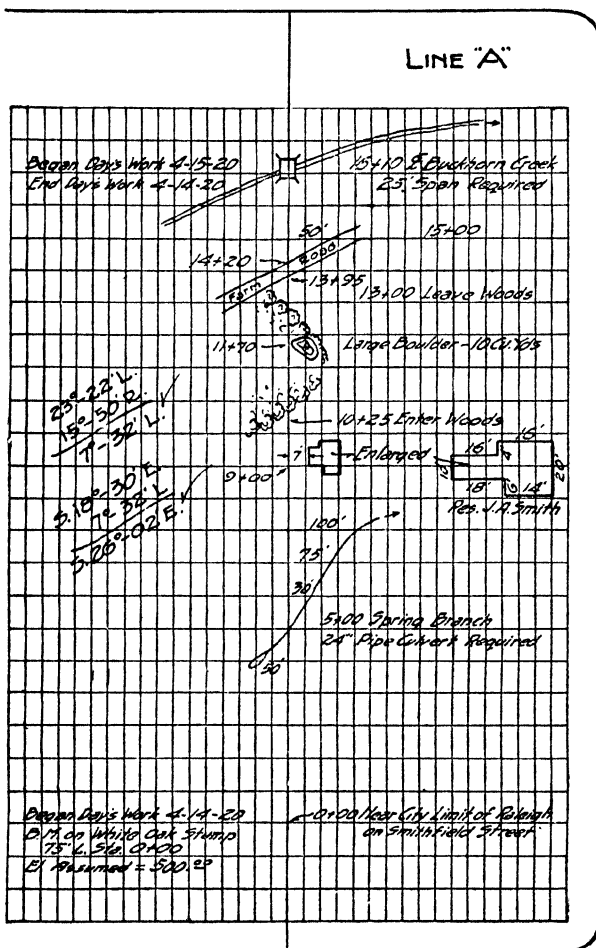 LINE "A"
Began Day's Work 4-15-20
End Day's Work 4-14-20
15+10 ℄ Buckhorn Creek
25' Span Required
50'
15+00
14+20
Farm Road
13+95
13+00 Leave Woods
11+70
Large Boulder - 10 Cu. Yds
23°-22' L.
15°-50' R.
7°-32' L.
10+25 Enter Woods
7'
Enlarged
16'
4'
16'
20'
10'
18'
6'
14'
9+00
Res. J.A. Smith
S.18°-30' E.
7°-32' L
S.26°-02' E.
100'
75'
30'
50'
5+00 Spring Branch
24" Pipe Culvert Required
Began Day's Work 4-14-20
B.M. on White Oak Stump
75' L. Sta. 0+00
El Assumed = 500.00
0+00 Near City Limit of Raleigh
on Smithfield Street